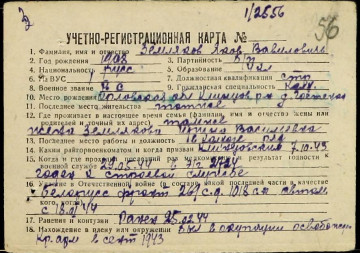 1/2656
56
УЧЕТНО-РЕГИСТРАЦИОННАЯ КАРТА №
1. Фамилия, имя и отчество Земляков Яков Вавилович
2. Год рождения 1908 3. Партийность б/п
4. Национальность русс 5. Образование 4 кл
6. № ВУС 1 7. Должностная квалификация стр
8. Военное звание К-С 9. Гражданская специальность
10. Место рождения Орловская обл Клинцов р-н д
11. Последнее местожительство тоже
12. Где проживает в настоящее время семья (фамилия, имя и отчество жены или родителей и точный их адрес)
жена Землякова Васильевна
13. Последнее место работы и должность
14. Каким райвоенкоматом и когда призван Клинцовский 7.10.43
15. Когда и где проходил последний раз медкомиссию и результат годности к военной службе 29.03.44
годен к строевой службе
16. Участие в Отечественной войне (в составе какой последней части в качестве кого и с какого времени)
Белорус фронт 269 с.д. 1018 с.п.
с 18.0 /44
17. Ранения и контузии Ранен 25.02.44
18. Нахождение в плену или окружении Был в оккупации освобожден
Кр. арм в сент 1943